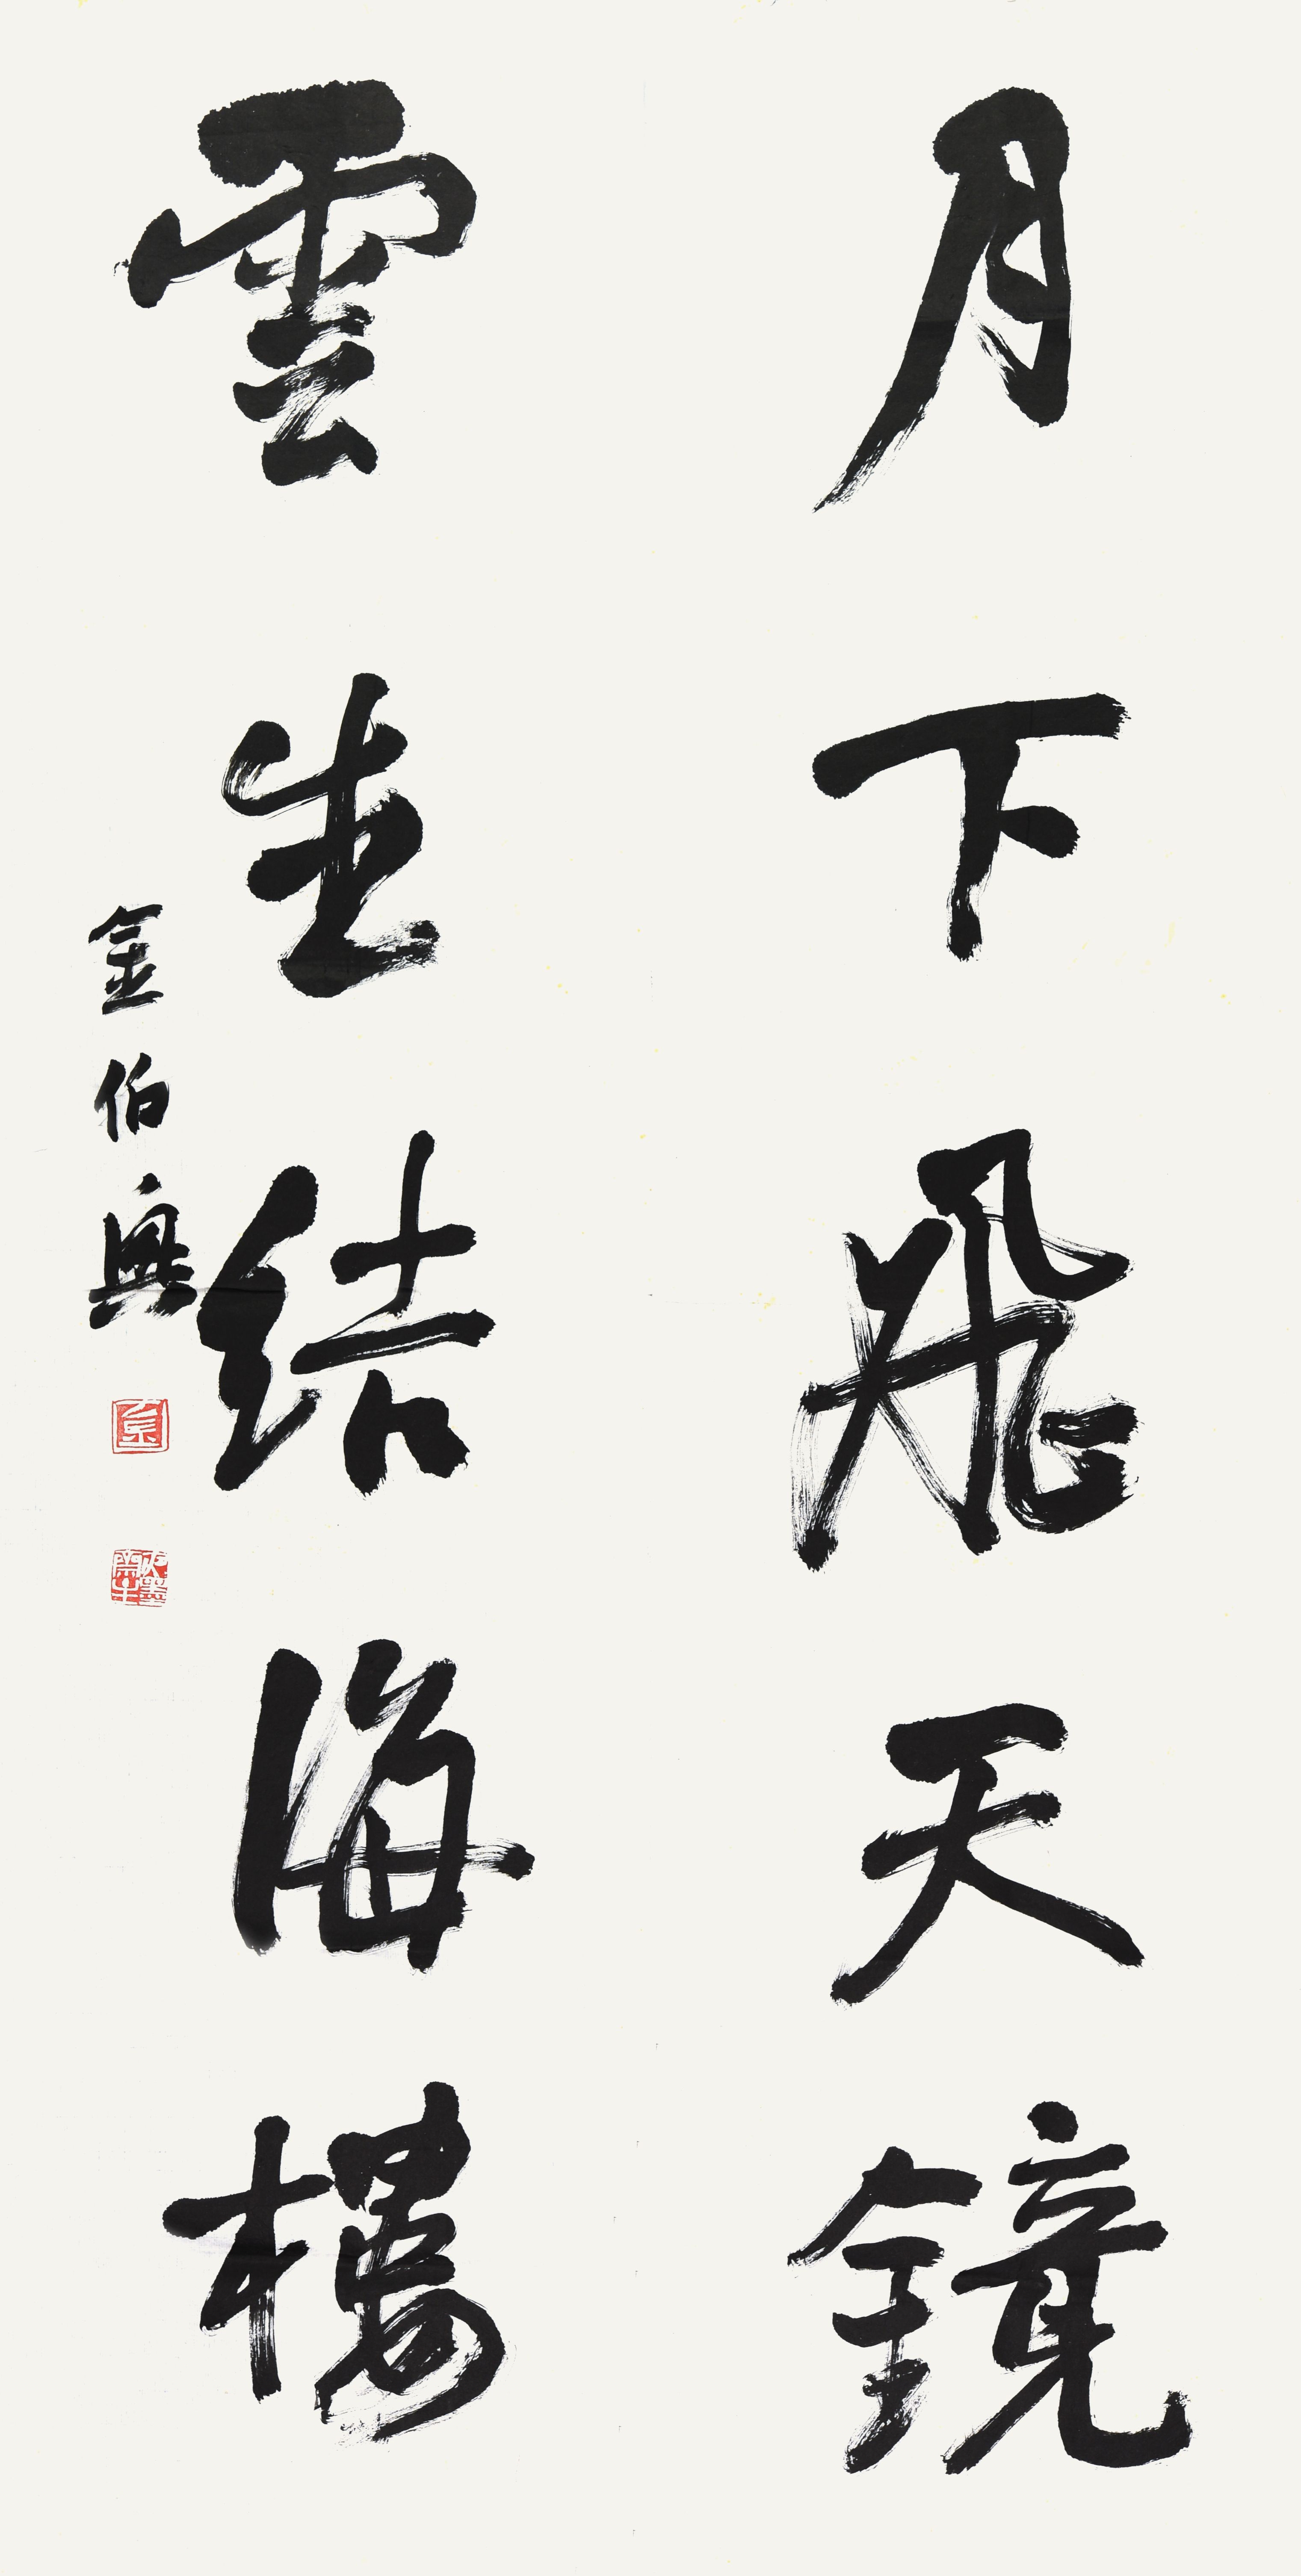 月下飛天鏡
雲生結海樓
金伯興